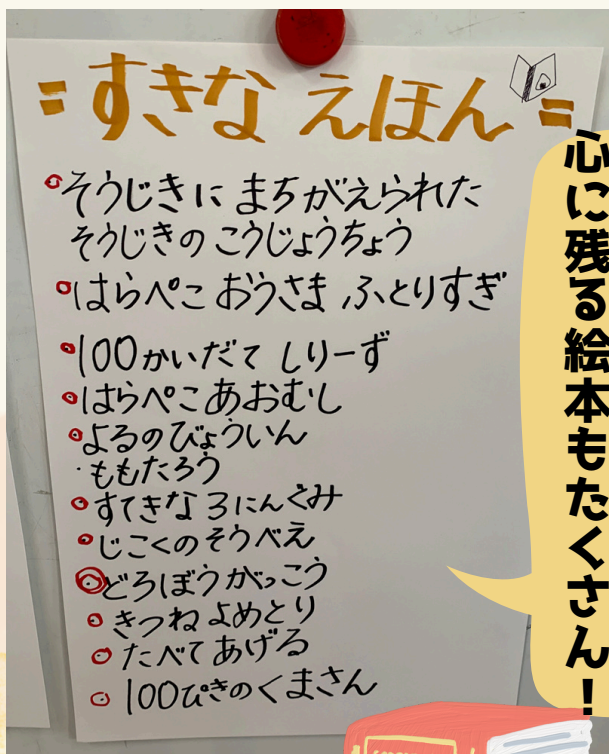 = すきな えほん =
そうじきに まちがえられた
そうじきの こうじょうちょう
はらぺこ おうさま ふとりすぎ
100かいだて しりーず
はらぺこあおむし
よるのびょういん
・ももたろう
すてきな 3にんぐみ
じごくのそうべえ
どろぼうがっこう
きつねよめとり
たべてあげる
100ぴきのくまさん
心に残る絵本もたくさん!